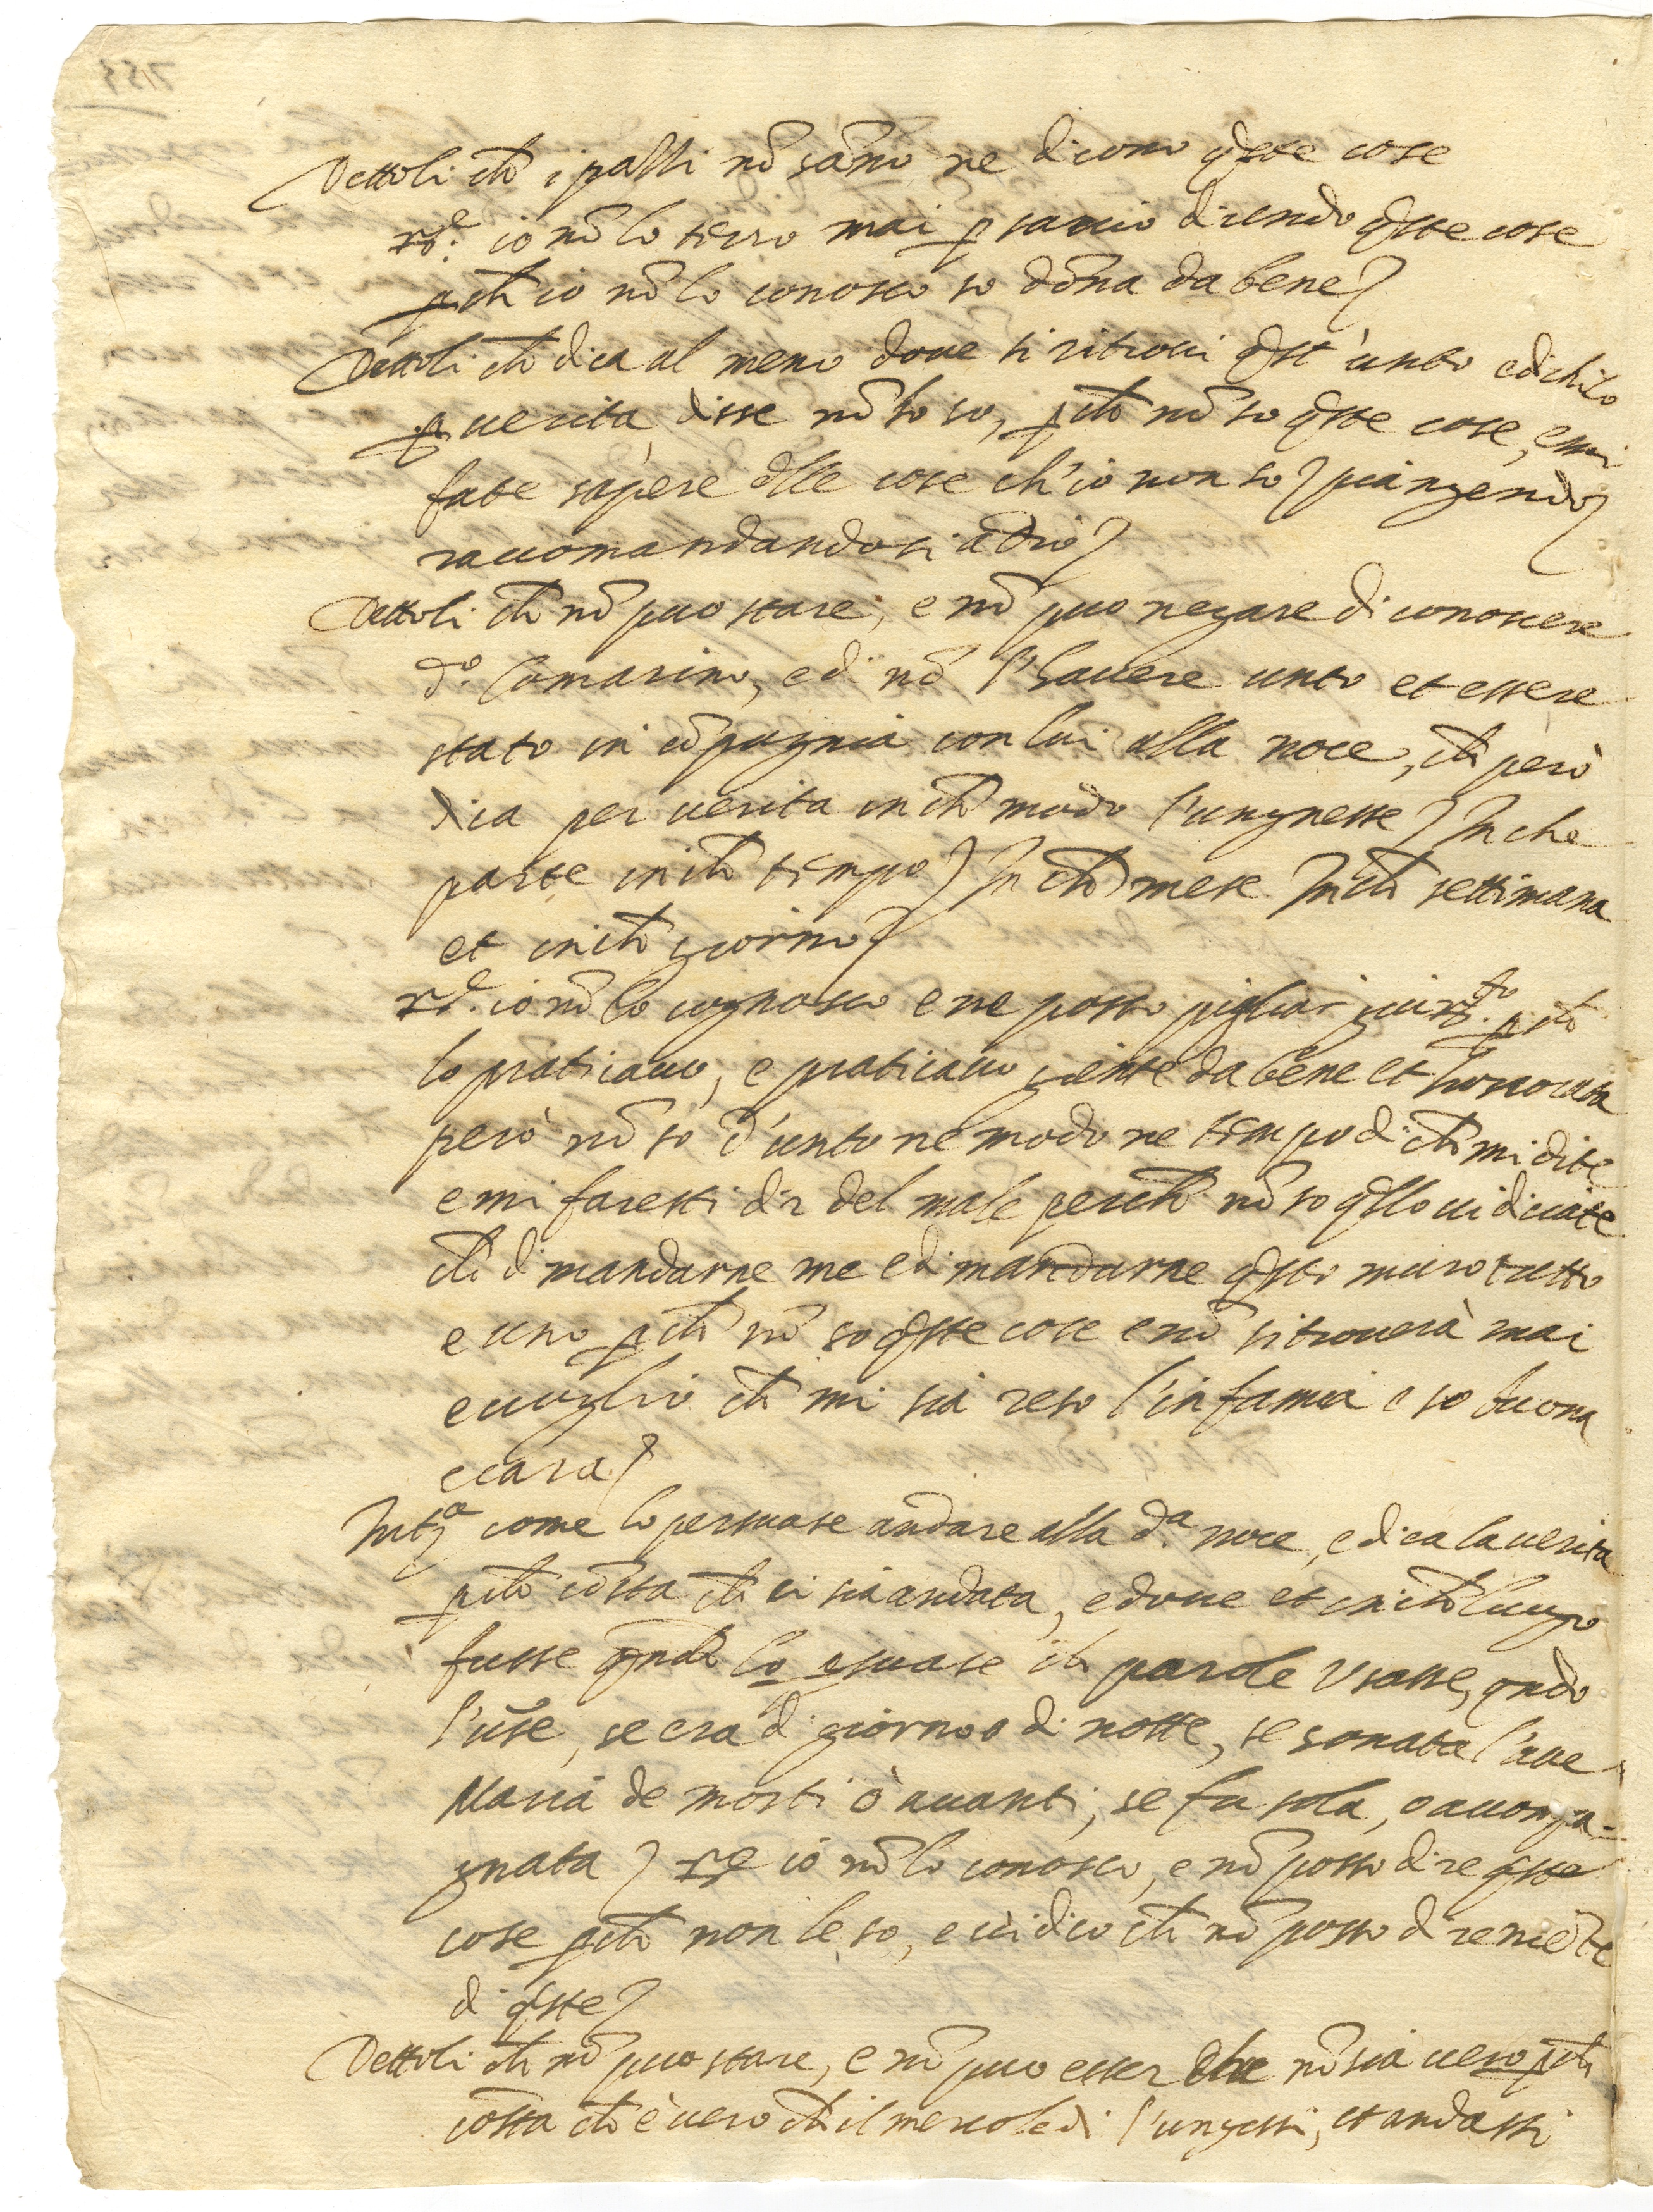 Dettoli ch̃ i passi nõ sãno ne dicono q̃ste cose
rs.e io nõ lo terro mai p savio dicendo q̃ste cose
p ch̃ io nõ lo conosco so dõna da bene
Dettoli ch̃ dica al meno dove si ritrovi q̃st' unto ed chi lo
p verita, disse nõ lo so, p ch̃ nõ so q̃ste cose, e mi
fate sapere q̃lle cose ch'io non so piangendo
raccomandandosi a Dio
Dettoli ch̃ nõ puo stare, e nõ puo negare di conoscere
do. Comarino, e di nõ l'havere unto et essere
stato in cõpagnia con lui alla noce, ch̃ però
dica per verita in ch̃ modo l'ungnesse In che
parte in ch̃ tempo In ch̃ mese In ch̃ settimana
et in ch̃ giorno
rs.e io nõ lo cognosco e ne posso pigliar p ch̃
lo praticavo, e praticavo gente da bene et honorata
però nõ so d'unto ne modo ne tempo di ch̃ mi dite
e mi faresti dir del male perch̃ nõ so q̃llo vi diciate
ch̃ dimandarne me e dimandarne q̃sto muro tutto
e uno p ch̃ nõ so q̃ste cose e nõ si troverà mai
e voglio ch̃ mi sia reso l'infamia e so buona
e cara
Int.a come lo persuase andare alla da. noce, e dica la verita
p ch̃ cõsta ch̃ ci sia andata, e dove et in ch̃ luogo
fusse qñdo lo psuase ch̃ parole usasse, qñdo
l'use, se era di giorno o di notte, se sonata l'ave
Maria de morti ò avanti, se fu sola, o accompa-
gnata rs.e io nõ lo conosco, e nõ posso dire q̃ste
cose p ch̃ non le so, e vi dico ch̃ nõ posso dire niẽte
di q̃ste
Dettoli ch̃ nõ puo stare, e nõ puo esser che nõ sia vero p ch̃
cõsta ch̃ è vero ch̃ il mercoledi l'ungesti, et andassi